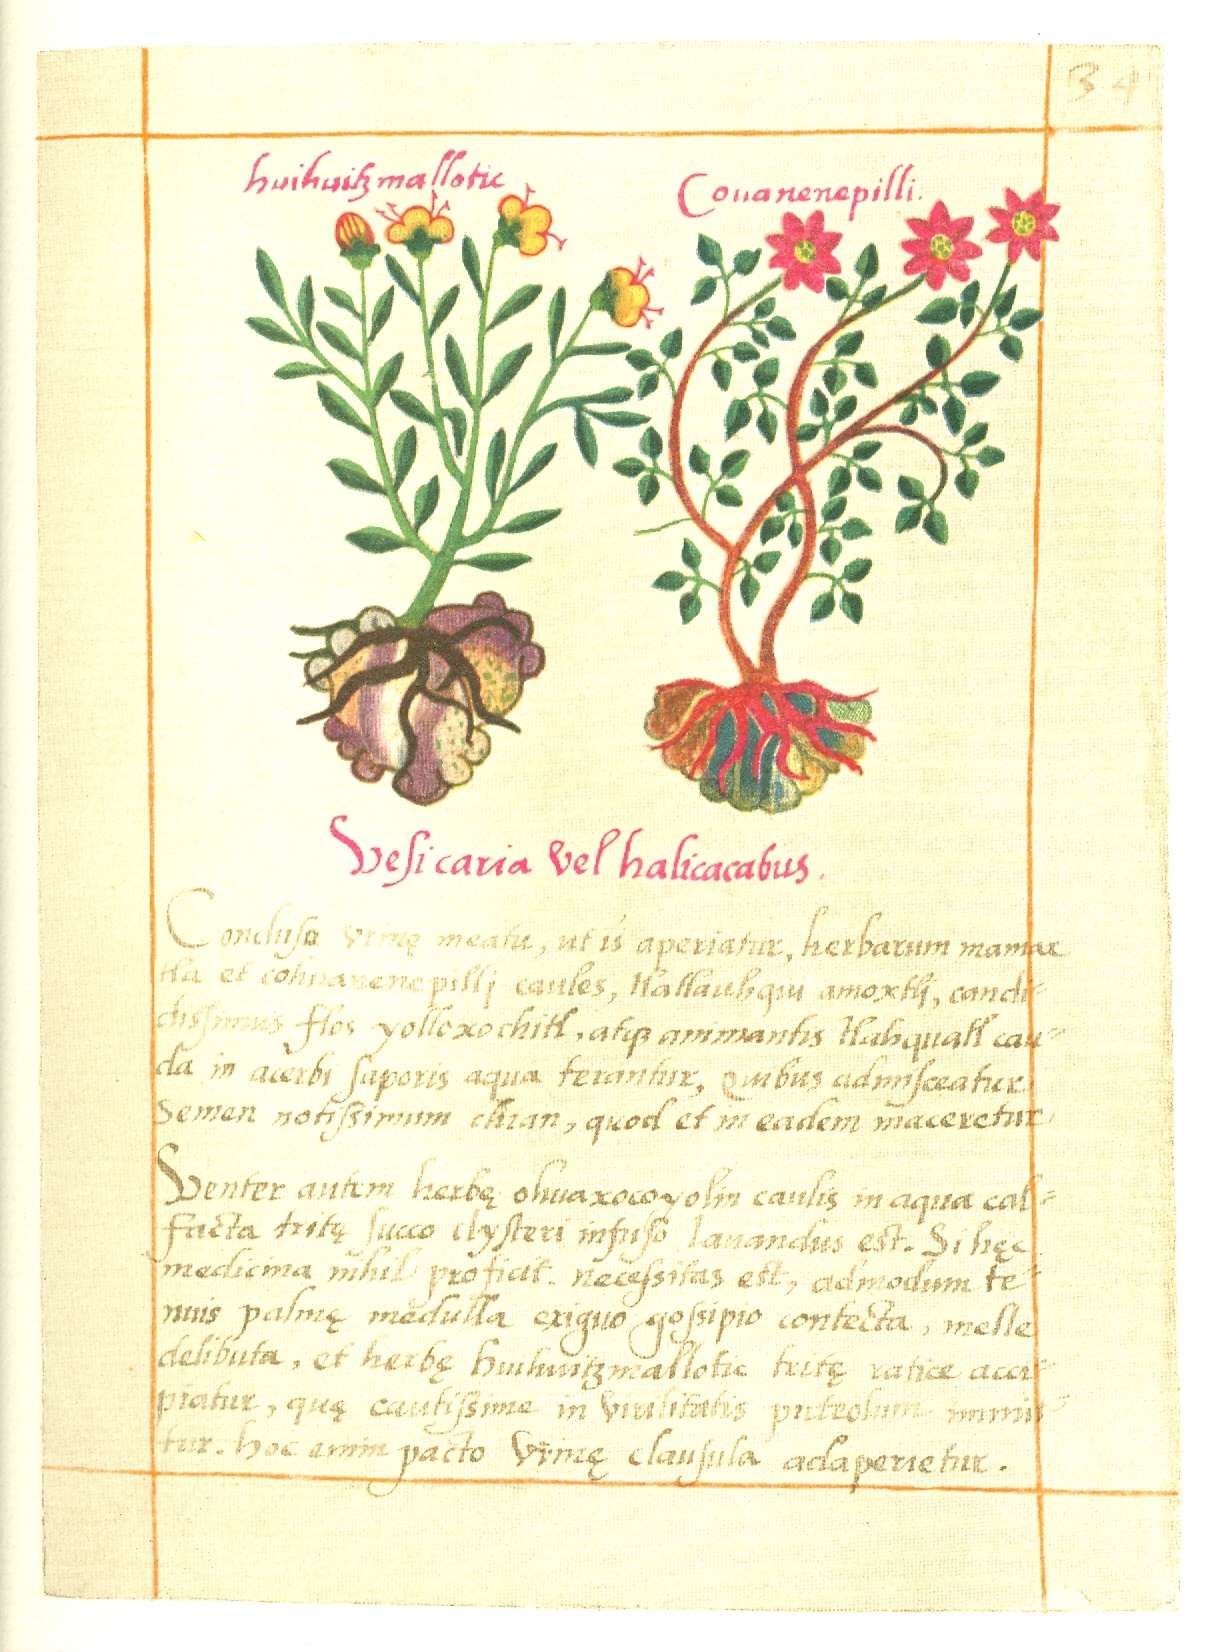 34
huihuitzmallotic
Couanenepilli.
Vesicaria vel halicacabus.
Concluso vrinę meatu, ut is aperiatur, herbarum mamax
tla et cohuanenepilli caules, tlatlauhqui amoxtlj, candi-
dissimus flos yolloxochitl, atqꝫ animantis tlahquatl cau-
da in acerbi saporis aqua terantur, Quibus admisceatur
Semen notissimum chian, quod et in eadem maceretur.
Venter autem herbę ohuaxocoyolin caulis in aqua cal-
facta tritę succo clysteri infuso lauandus est. Si hęc
medicina nihil proficit. necessitas est, admodum te-
nuis palmę medulla exiguo gossipio contecta, melle
delibuta, et herbę huihuitzmallotic tritę ratice acci-
piatur, quę cautissime in virilitatis puteolum immit-
tur. hoc enim pacto vrinę clausula adaperietur.